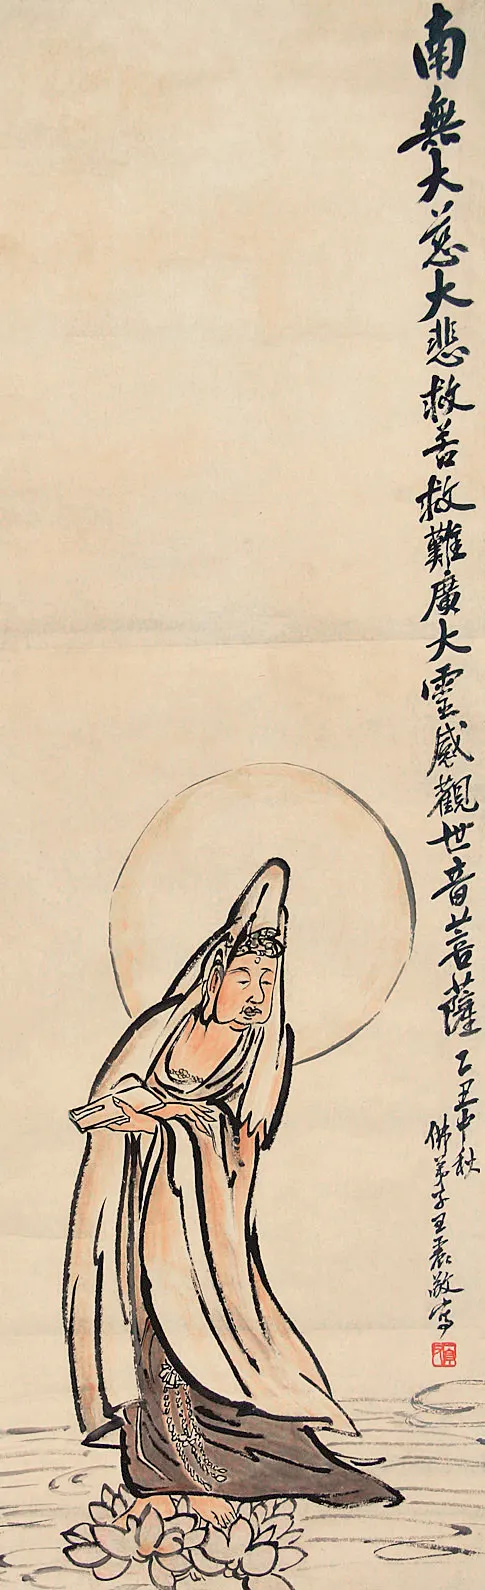 南無大慈大悲救苦救難廣大靈感觀世音菩薩 乙丑中秋
佛弟子王震敬寫